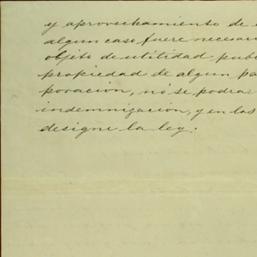 y aprovechamiento de
algun caso fuere necesari
objeto de utilidad pub
propiedad de algun pa
poracion, no se podrá
indemnizacion, y en los
designe la ley.